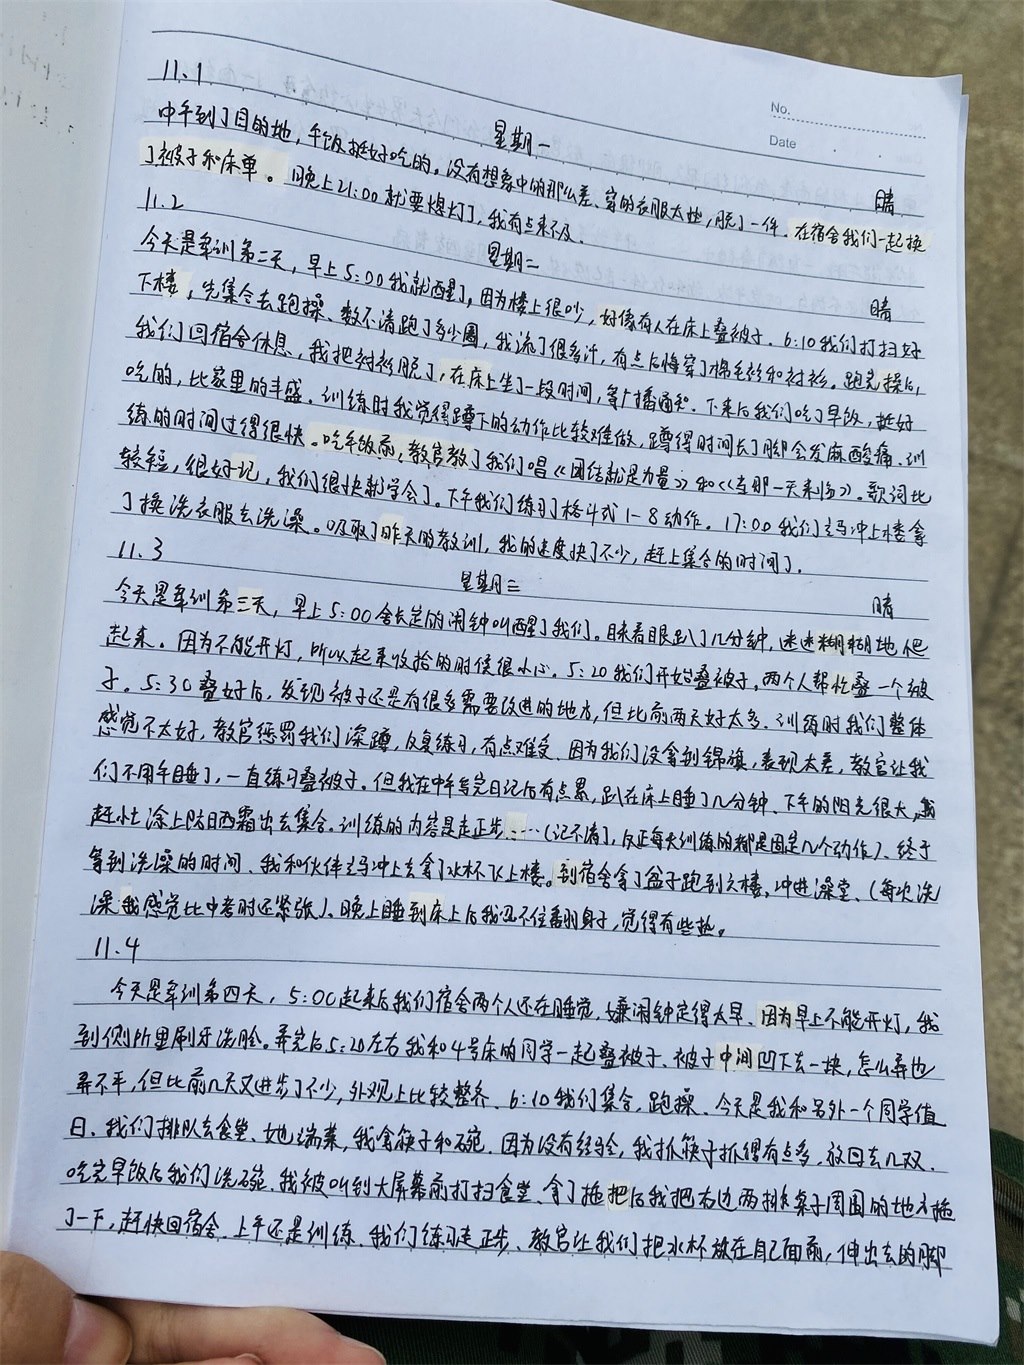 No.
Date
11.1 星期一 晴
中午到了目的地，午饭挺好吃的。没有想象中的那么差、穿的衣服太热，脱了一件。在宿舍我们一起换
了被子和床单。晚上21:00就要熄灯了，我有点来不及.
11.2 星期二 晴
今天是军训第二天，早上5:00我就醒了，因为楼上很吵，好像有人在床上叠被子. 6:10我们打扫好
下楼，先集合去跑操、数不清跑了多少圈，我流了很多汗，有点后悔穿了棉毛衫和衬衫。跑完操后，
我们回宿舍休息，我把衬衫脱了，在床上坐了一段时间，等广播通知. 下来后我们吃了早饭，挺好
吃的，比家里的丰盛。训练时我觉得蹲下的动作比较难做，蹲得时间长了脚会发麻酸痛. 训
练的时间过得很快。吃午饭前，教官教了我们唱《团结就是力量》和《当那一天来临》。歌词比
较短，很好记，我们很快就学会了。下午我们练习格斗式1-8动作. 17:00我们立马冲上楼拿
了换洗衣服去洗澡。吸取了昨天的教训，我的速度快了不少，赶上集合的时间了.
11.3 星期三 晴
今天是军训第三天，早上5:00舍长定的闹钟叫醒了我们。眯着眼趴了几分钟，迷迷糊糊地爬
起来。因为不能开灯，所以起来收拾的时候很小心. 5:20我们开始叠被子，两个人帮忙叠一个被
子。5:30叠好后，发现被子还是有很多需要改进的地方，但比前两天好太多. 训练时我们整体
感觉不太好，教官惩罚我们深蹲，反复练习，有点难受. 因为我们没拿到锦旗，表现太差，教官让我
们不用午睡了，一直练习叠被子. 但我在中午写完日记后有点累，趴在床上睡了几分钟. 下午的阳光很大，
赶忙涂上防晒霜出去集合。训练的内容是走正步……（记不清了，反正每天训练的都是固定几个动作）. 终于
等到洗澡的时间、我和伙伴立马冲上去拿了水杯飞上楼。到宿舍拿了盆子跑到六楼，冲进澡堂、（每次洗
澡我感觉比中考时还紧张）. 晚上睡到床上后我忍不住翻身子，觉得有些热。
11.4
今天是军训第四天，5:00起来后我们宿舍两个人还在睡觉，嫌闹钟定得太早. 因为早上不能开灯，我
到厕所里刷牙洗脸。弄完后5:20左右我和4号床的同学一起叠被子、被子中间凹下去一块，怎么弄也
弄不平，但比前几天又进步了不少，外观上比较整齐. 6:10我们集合，跑操、今天是我和另外一个同学值
日、我们排队去食堂、她端菜，我拿筷子和碗. 因为没有经验，我抓筷子抓得有点多，放回去几双.
吃完早饭后我们洗碗. 我被叫到大屏幕前打扫食堂. 拿了拖把后我把右边两排桌子周围的地方拖
了一下，赶快回宿舍. 上午还是训练、我们练习走正步、教官让我们把水杯放在自己面前，伸出去的脚